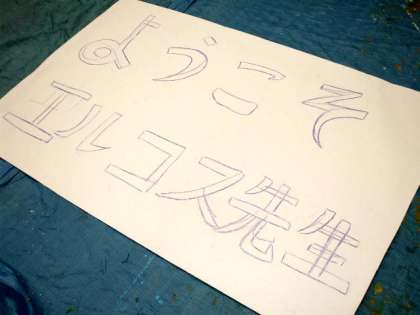 ようこそ
エルコス先生